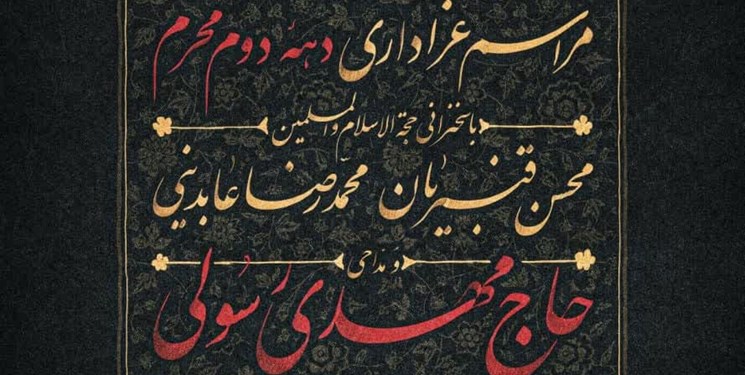 مراسم عزاداری دههٔ دوم محرم
با سخنرانی حجة الاسلام والمسلمین
محسن قنبریان محمّدرضا عابدینی
و مداحی
حاج مهدی رسُولی